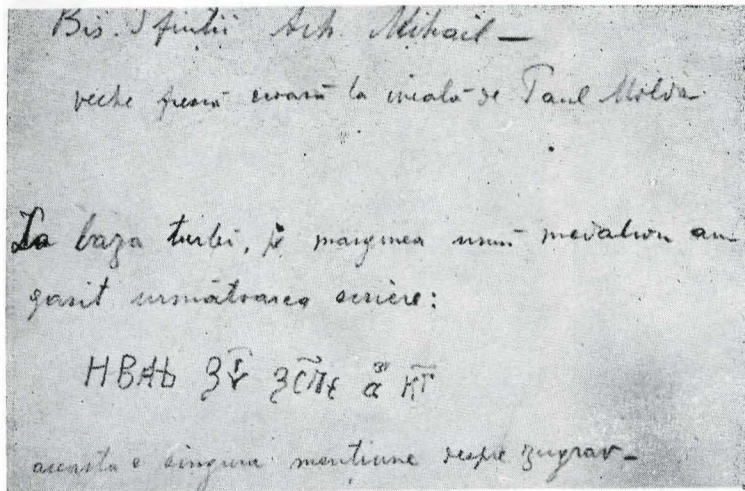 Bis. Sfinții Arh. Mihail —
veche frescă scoasă la iveală de Paul Molda
La baza turlei, pe marginea unui medalion am
găsit următoarea scriere:
aceasta e singura mențiune despre zugrav —